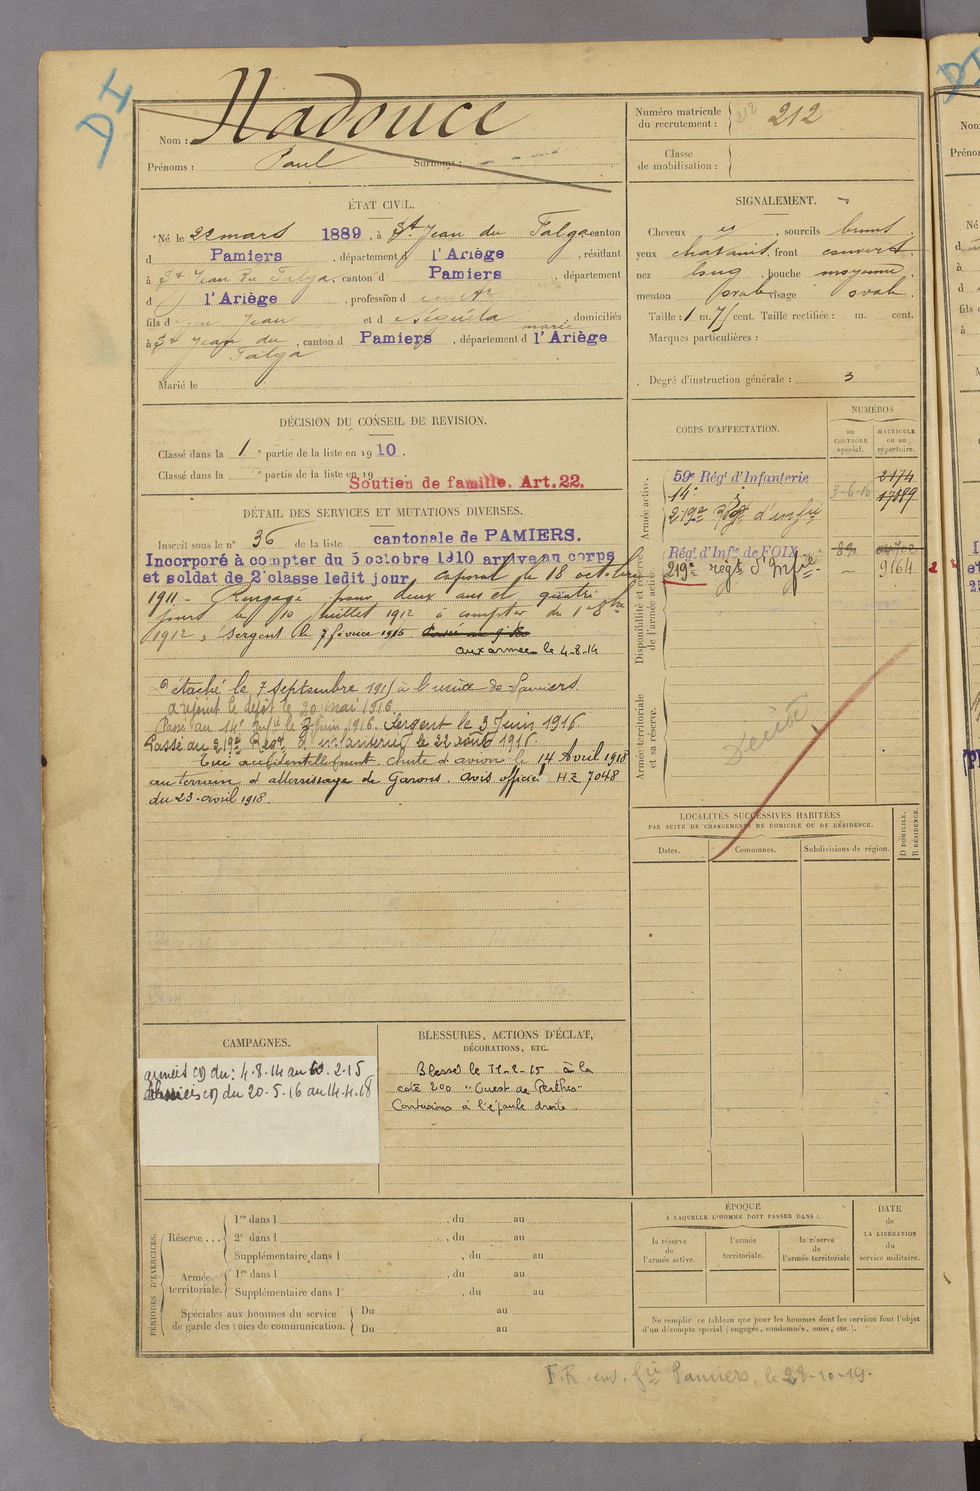 DI
Nom : Nadouce
Prénoms : Paul Surnoms :
Numéro matricule
du recrutement : 212 212
Classe
de mobilisation :
ÉTAT CIVIL.
Né le 22 mars 1889, à St Jean du Falga canton
d Pamiers, département d l'Ariège, résidant
à St Jean du Falga, canton d Pamiers, département
d l'Ariège, profession d
fils d Jean et d Séguéla marie, domiciliés
à St Jean du Falga, canton d Pamiers, département d l'Ariège
Marié le
SIGNALEMENT.
Cheveux et, sourcils bruns.
yeux chatains, front couvert
nez long, bouche moyenne.
menton ovale visage ovale.
Taille : 1 m. 75 cent. Taille rectifiée : m. cent.
Marques particulières :
Degré d'instruction générale : 3
DÉCISION DU CONSEIL DE REVISION.
Classé dans la 1e partie de la liste en 1910.
Classé dans la e partie de la liste en 19
Soutien de famille. Art. 22.
DÉTAIL DES SERVICES ET MUTATIONS DIVERSES.
Inscrit sous le n° 36 de la liste cantonale de PAMIERS.
Incorporé à compter du 5 octobre 1910 arrivé au corps
et soldat de 2e classe ledit jour, caporal le 18 octobre
1911 - Rengagé pour deux ans et quatre
jours le 10 juillet 1912 à compter du 1er 8bre
1912, Sergent le 7 février 1915.
aux armées le 4-8-14
Détaché le 7 septembre 1915 à l'usine de Pamiers.
a rejoint le dépôt le 20 mai 1916.
Passé au 14e Infie le 3 juin 1916. Sergent le 3 Juin 1916
Passé au 219e Régt d'infanterie le 22 août 1916.
Tué accidentellement. Chute d'avion le 14 Avril 1918
au terrain d'atterrissage de Garons. Avis officiel HZ 7048
du 23 avril 1918.
CORPS D'AFFECTATION.
NUMÉROS
au CONTRÔLE spécial.
MATRICULE ou au répertoire.
Armée active.
59e Régt d'Infanterie 2174
14e 3-6-16 17889
219e Régt d'infie
Disponibilité et réserve de l'armée active.
Régt d'Infie de FOIX
219e régt d'Infie. 9164
Armée territoriale et sa réserve.
Décédé
LOCALITÉS SUCCESSIVES HABITÉES
PAR SUITE DE CHANGEMENTS DE DOMICILE OU DE RÉSIDENCE.
Dates. Communes. Subdivisions de région.
D DOMICILE.
R RÉSIDENCE.
CAMPAGNES.
du : 4-8-14 au 2-15
du 20-5-16 au 14-4-18
BLESSURES, ACTIONS D'ÉCLAT,
DÉCORATIONS, ETC.
Blessé le 2-15 à la
cote 200 "Ouest de Perthes"
Contusions à l'épaule droite.
PÉRIODES D'EXERCICES.
Réserve ...
1re dans l , du au
2e dans l , du au
Supplémentaire dans l , du au
Armée territoriale.
1re dans l , du au
Supplémentaire dans l , du au
Spéciales aux hommes du service
de garde des voies de communication.
Du au
Du au
ÉPOQUE
À LAQUELLE L'HOMME DOIT PASSER DANS :
la réserve de l'armée active.
l'armée territoriale.
la réserve de l'armée territoriale
DATE
de
LA LIBÉRATION
du
service militaire.
Ne remplir ce tableau que pour les hommes dont les services font l'objet
d'un décompte spécial (engagés, condamnés, omis, etc.).
F.R. env. Gie Pamiers, le 28-10-19.